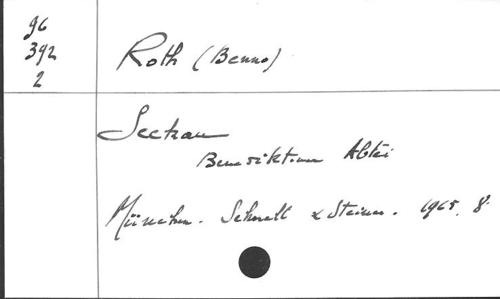 96
392
2
Roth (Benno)
Seckau
Benediktiner Abtei
München. Schnell & Steiner. 1965. 8°